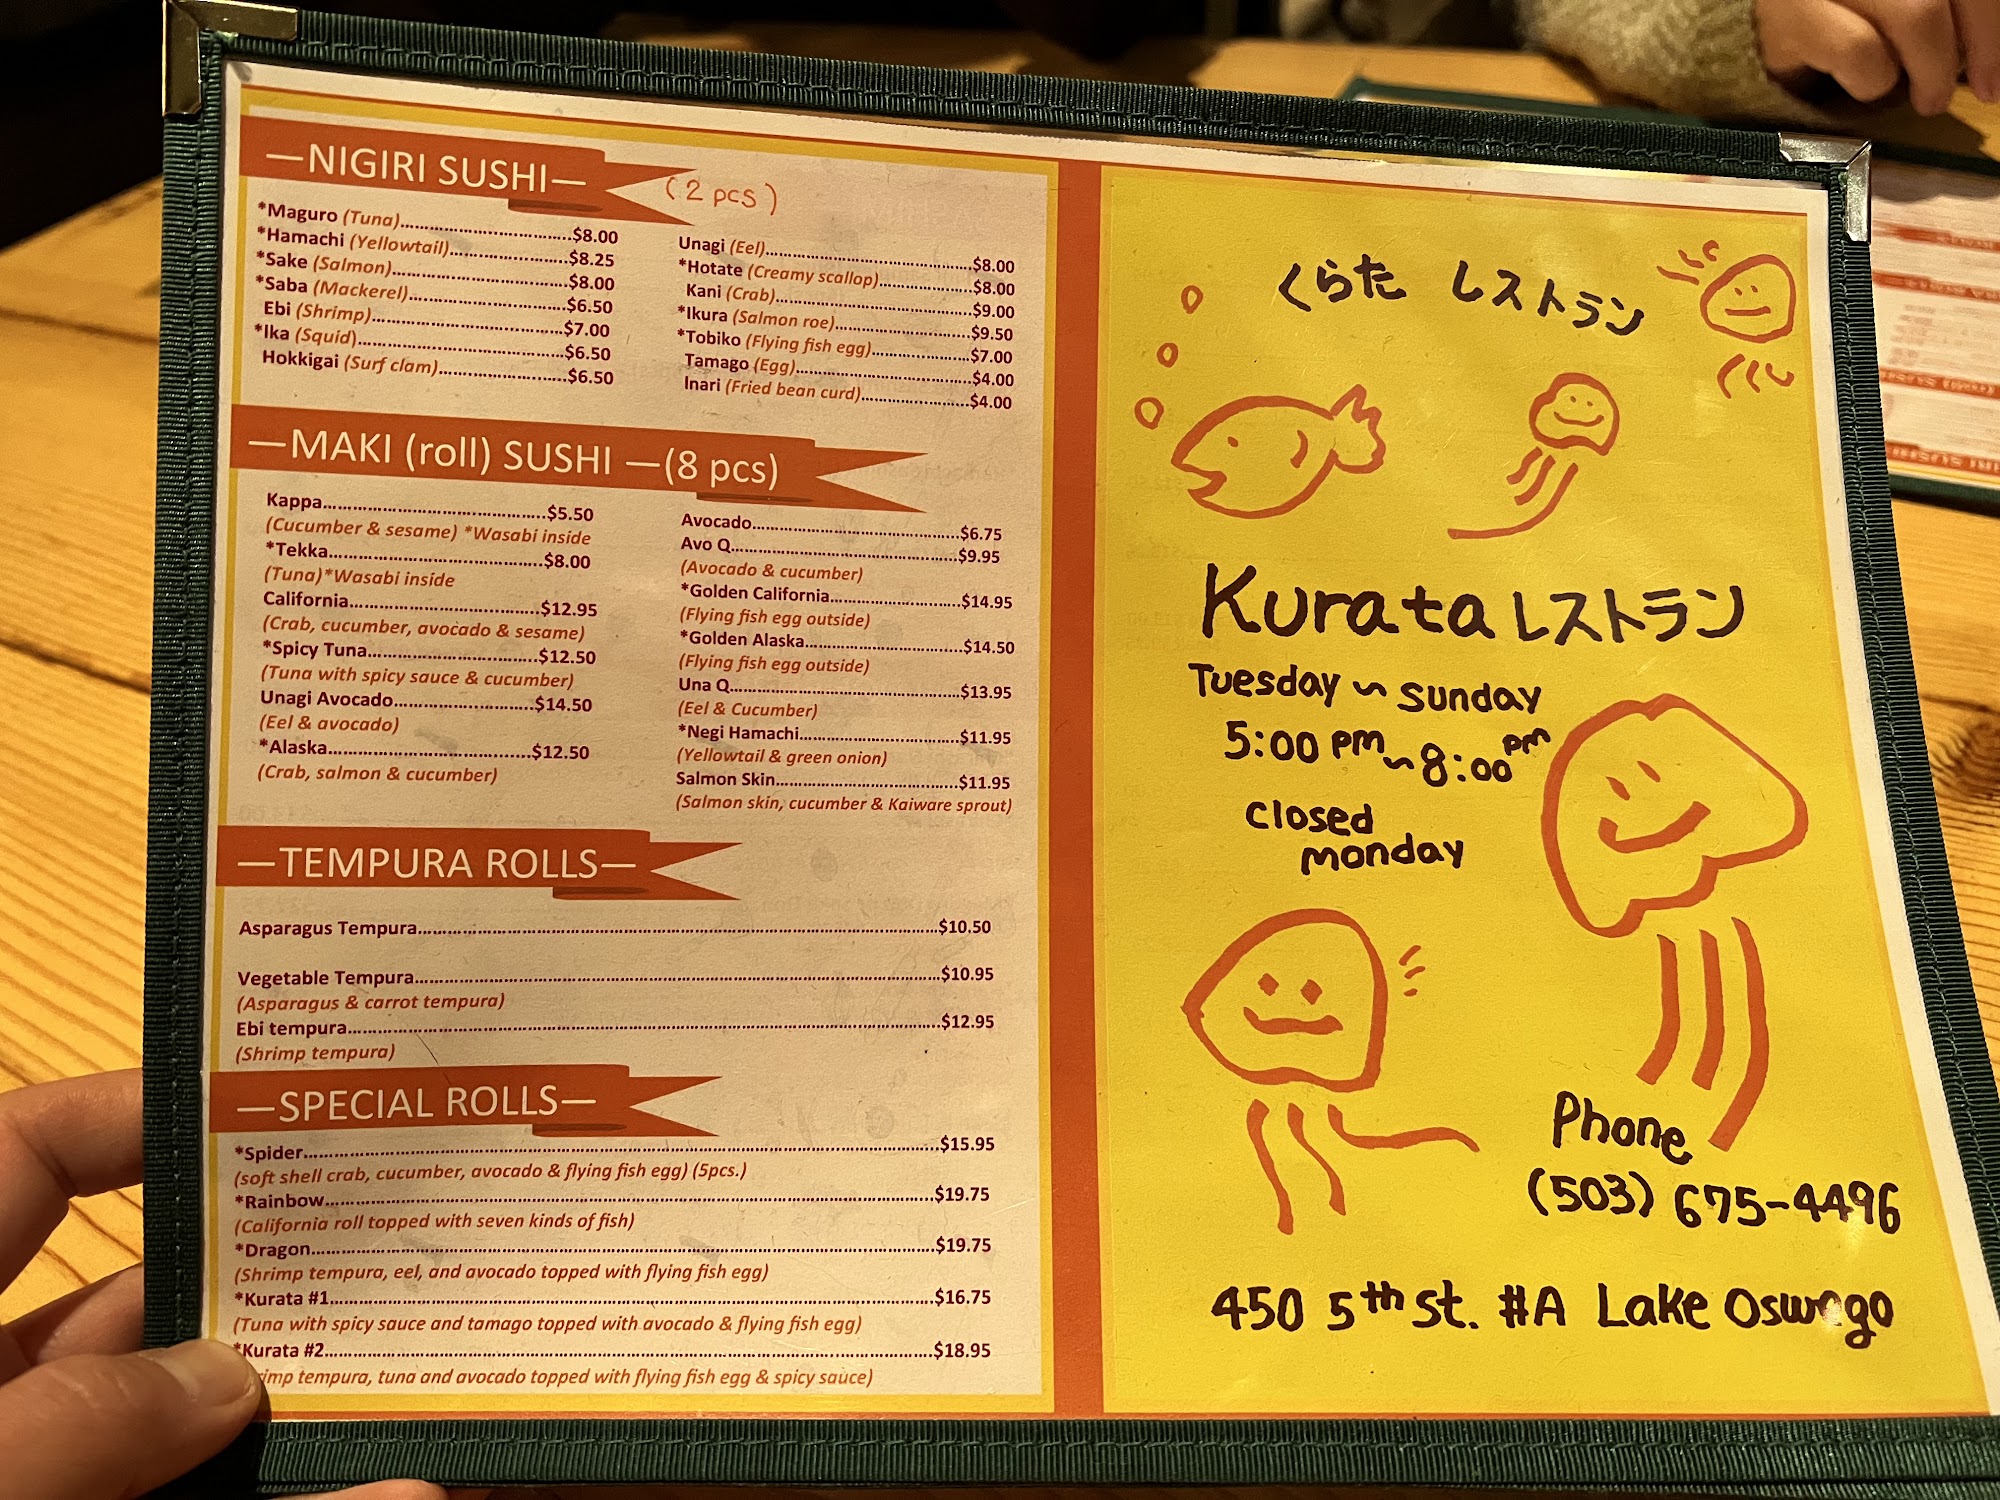 —NIGIRI SUSHI—
(2 pcs)
*Maguro (Tuna)..............................$8.00
*Hamachi (Yellowtail)....................$8.25
*Sake (Salmon)..............................$8.00
*Saba (Mackerel)..........................$6.50
Ebi (Shrimp).................................$7.00
*Ika (Squid)..................................$6.50
Hokkigai (Surf clam)....................$6.50
Unagi (Eel)....................................$8.00
*Hotate (Creamy scallop)................$8.00
Kani (Crab)..................................$9.00
*Ikura (Salmon roe).......................$9.50
*Tobiko (Flying fish egg)................$7.00
Tamago (Egg)..............................$4.00
Inari (Fried bean curd)..................$4.00
—MAKI (roll) SUSHI —(8 pcs)
Kappa.......................................$5.50
(Cucumber & sesame) *Wasabi inside
*Tekka.....................................$8.00
(Tuna)*Wasabi inside
California.................................$12.95
(Crab, cucumber, avocado & sesame)
*Spicy Tuna.............................$12.50
(Tuna with spicy sauce & cucumber)
Unagi Avocado........................$14.50
(Eel & avocado)
*Alaska...................................$12.50
(Crab, salmon & cucumber)
Avocado...................................$6.75
Avo Q.......................................$9.95
(Avocado & cucumber)
*Golden California......................$14.95
(Flying fish egg outside)
*Golden Alaska.........................$14.50
(Flying fish egg outside)
Una Q.......................................$13.95
(Eel & Cucumber)
*Negi Hamachi..........................$11.95
(Yellowtail & green onion)
Salmon Skin..............................$11.95
(Salmon skin, cucumber & Kaiware sprout)
—TEMPURA ROLLS—
Asparagus Tempura..............................$10.50
Vegetable Tempura..............................$10.95
(Asparagus & carrot tempura)
Ebi tempura..............................$12.95
(Shrimp tempura)
—SPECIAL ROLLS—
*Spider..............................$15.95
(soft shell crab, cucumber, avocado & flying fish egg) (5pcs.)
*Rainbow..............................$19.75
(California roll topped with seven kinds of fish)
*Dragon..............................$19.75
(Shrimp tempura, eel, and avocado topped with flying fish egg)
*Kurata #1..............................$16.75
(Tuna with spicy sauce and tamago topped with avocado & flying fish egg)
*Kurata #2..............................$18.95
tempura, tuna and avocado topped with flying fish egg & spicy sauce)
くらた レストラン
Kurata レストラン
Tuesday ~ Sunday
5:00 pm ~ 8:00 pm
closed
monday
Phone
(503) 675-4496
450 5th St. #A Lake Oswego